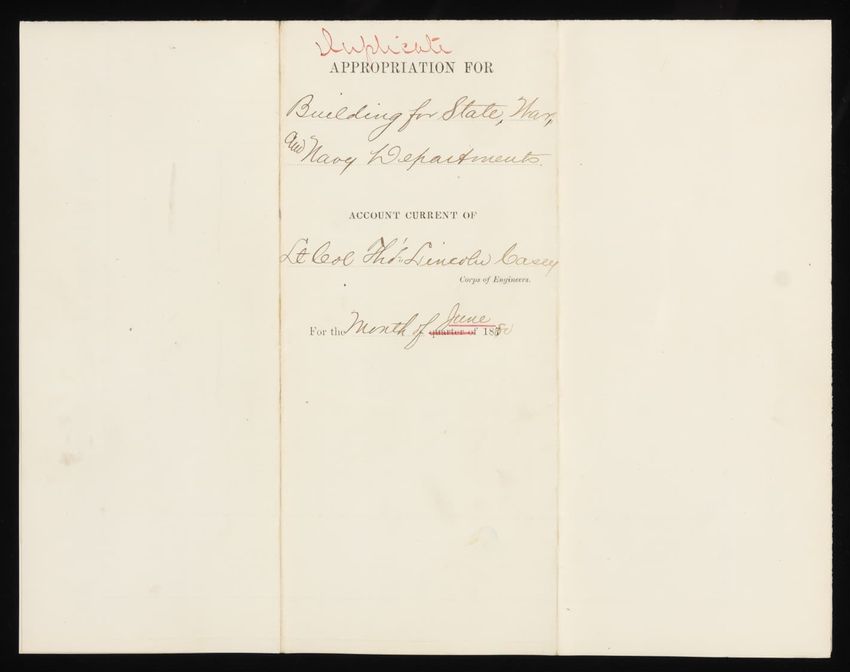 Duplicate
APPROPRIATION FOR
Building for State, War,
and Navy Departments.
ACCOUNT CURRENT OF
Lt Col Thos. Lincoln Casey
Corps of Engineers.
For the Month of June quarter of 1880